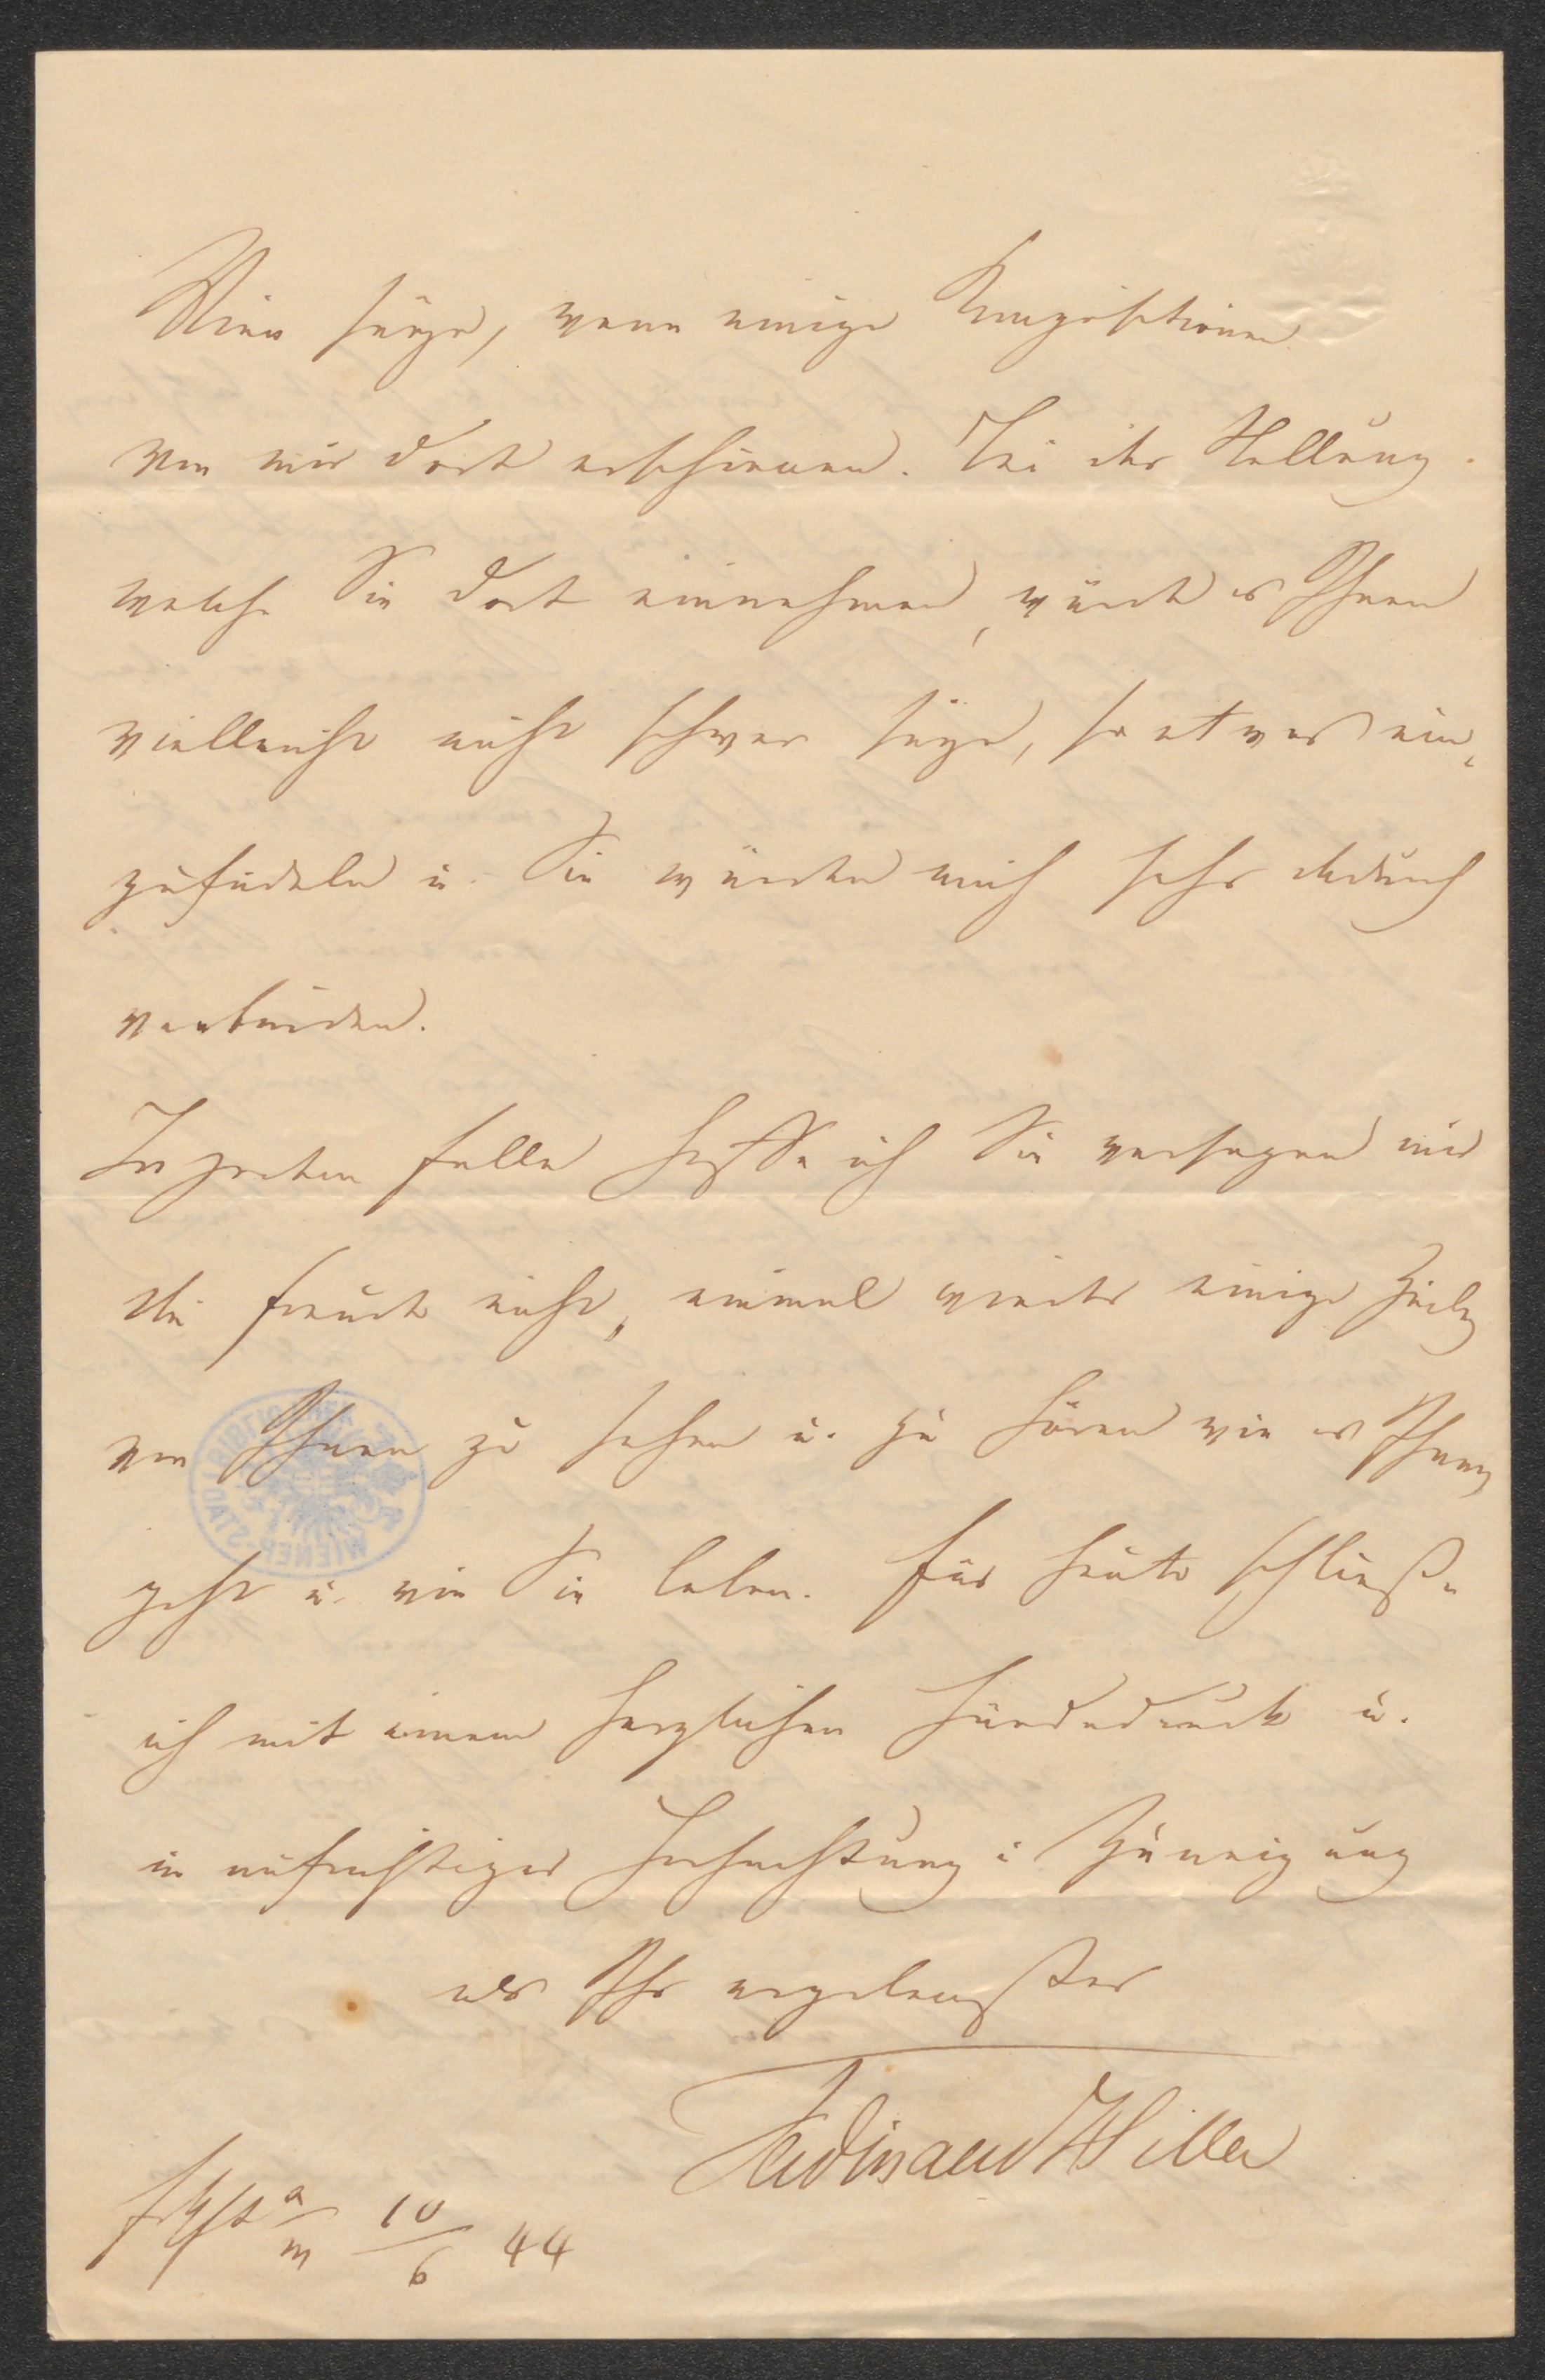 Wien seyn, wenn einige Kompositionen
von mir dort erschienen. Bei der Stellung
welche Sie dort einnehmen, würde es Ihnen
vielleicht nicht schwer seyn, so etwas ein-
zufädeln u. Sie würden mich sehr dadurch
verbinden.
In jedem Falle hoffe ich Sie versagen mir
die Freude nicht, einmal wieder einige Zeilen
von Ihnen zu sehen u. zu hören wie es Ihnen
geht u. wie Sie leben. Für heute schließe
ich mit einem herzlichen Händedruck u.
in aufrichtiger Hochachtung u Zuneigung
als Ihr ergebenster
Ferdinand Hiller
Frkft a/m 10/6 44
WIENER-STADT